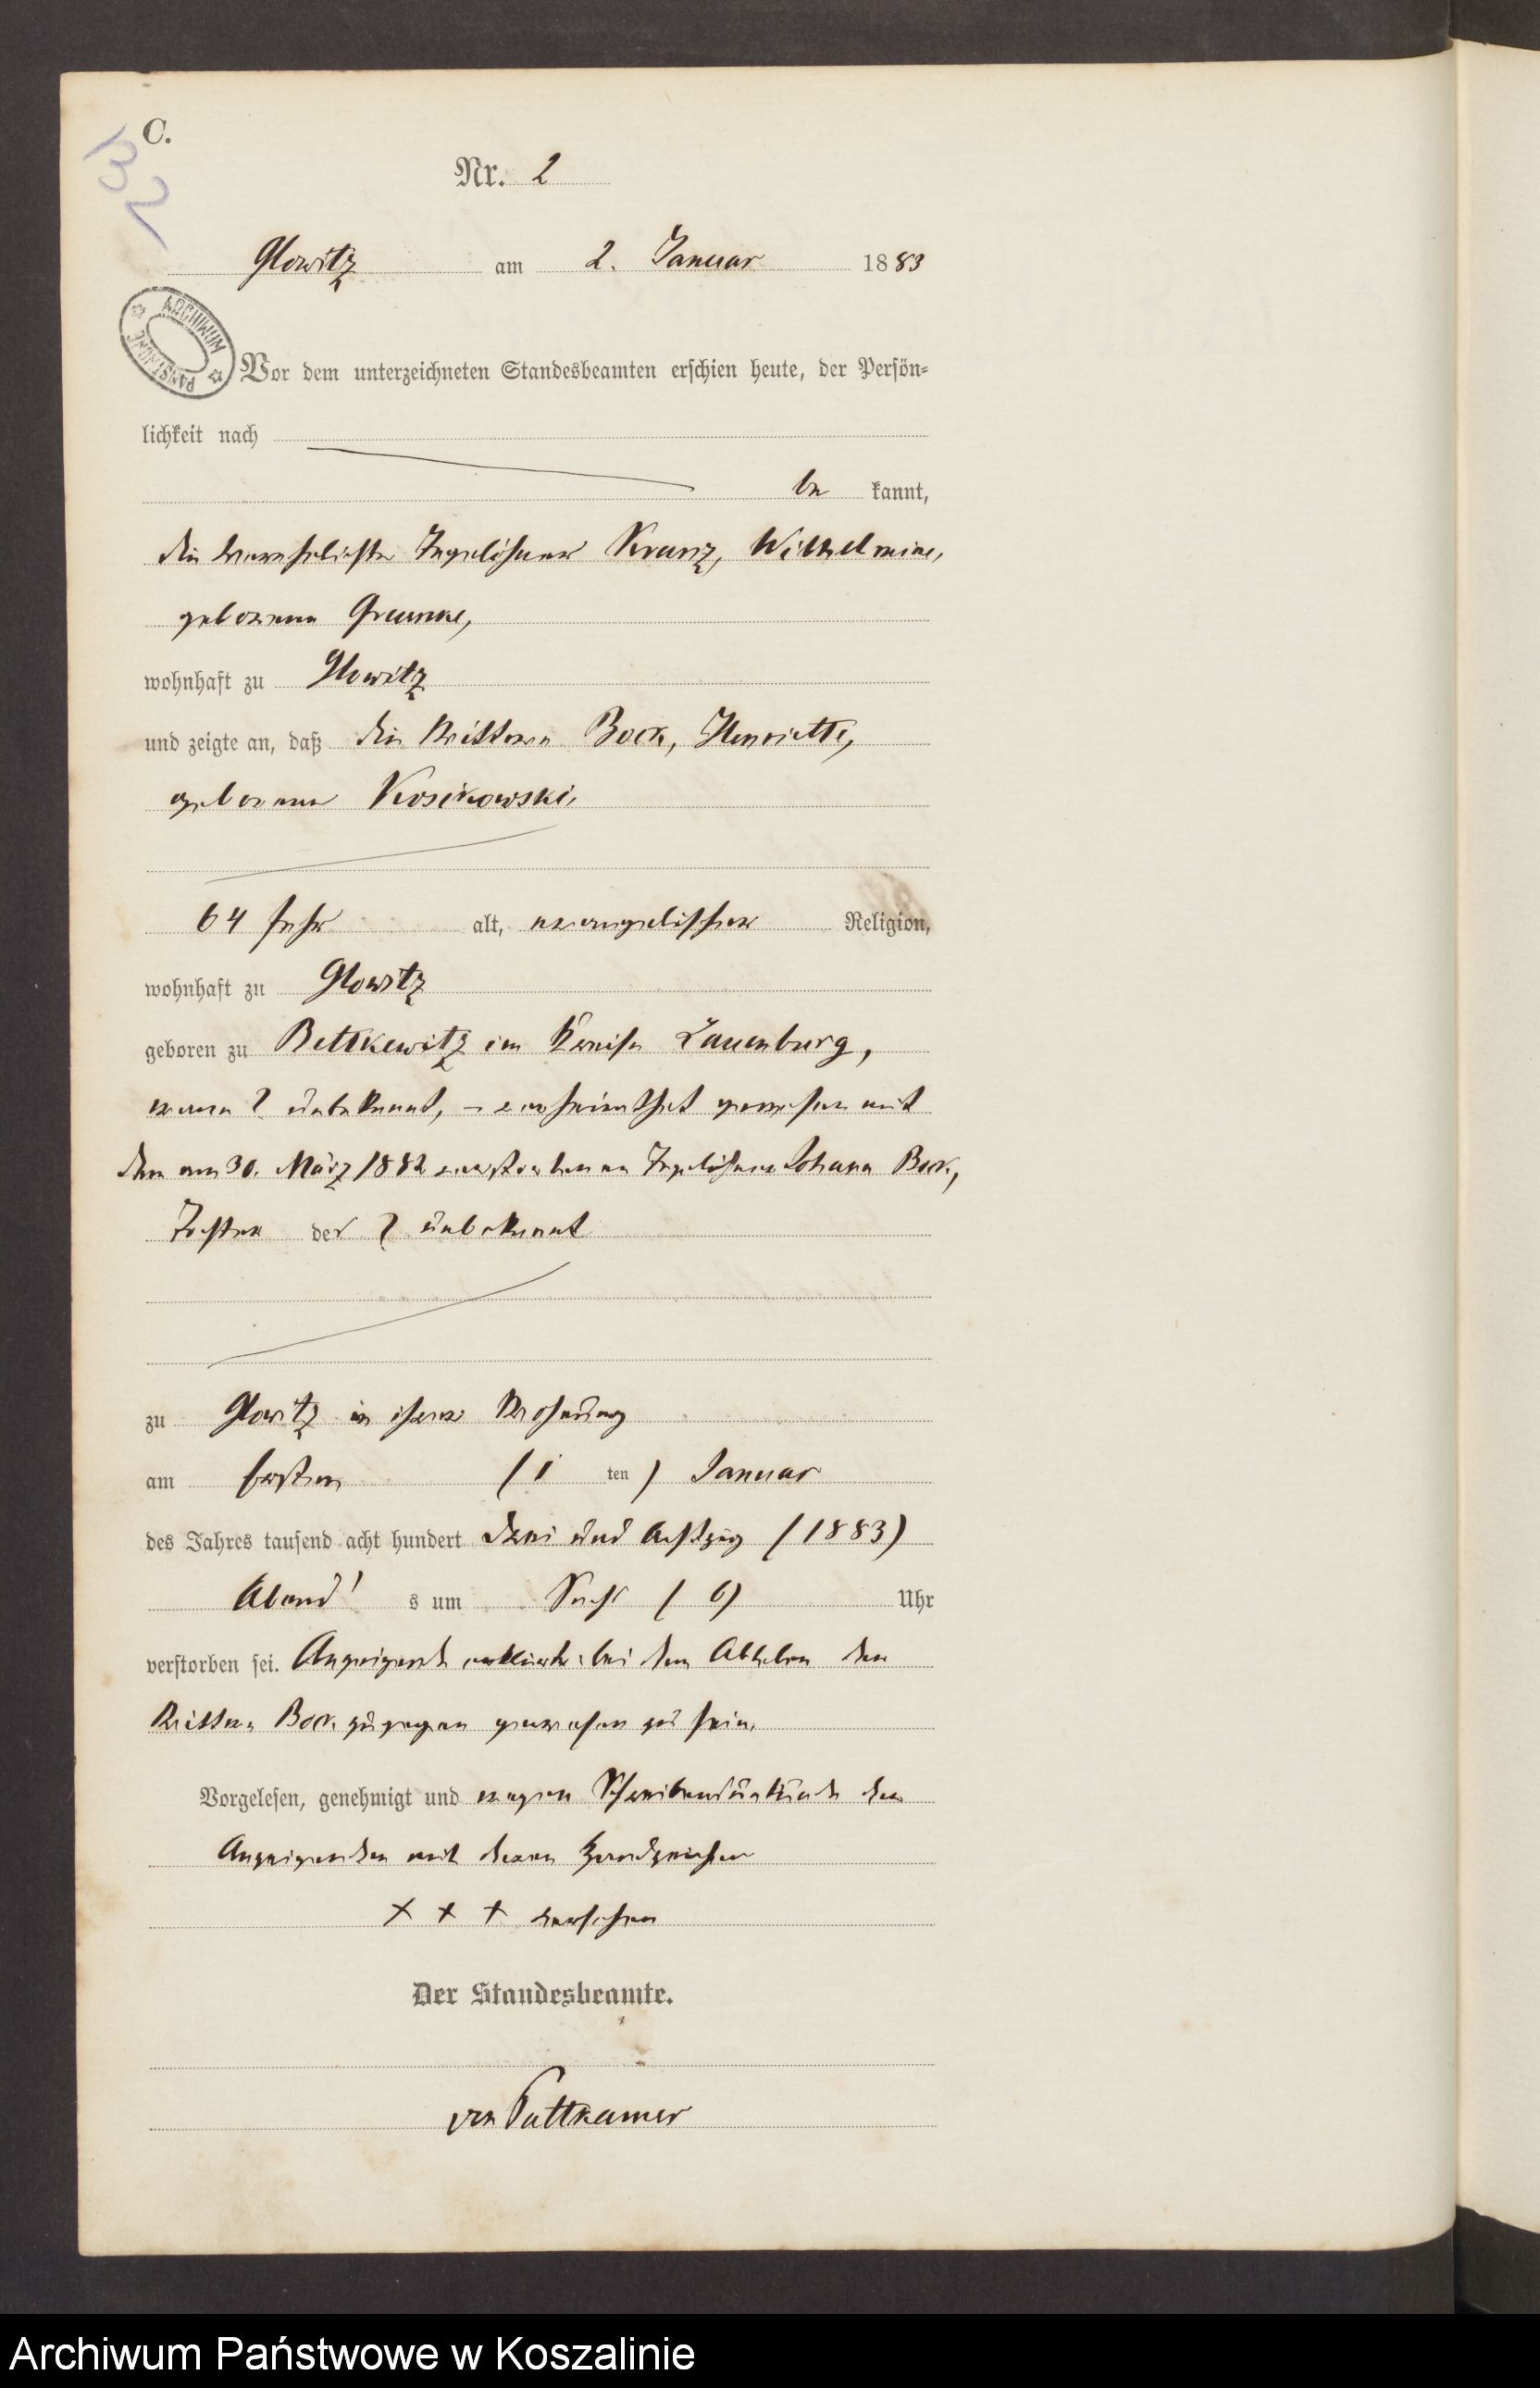 C.
132
Nr. 2
Glowitz am 2. Januar 1883
ARCHIWUM PAŃSTWOWE
Vor dem unterzeichneten Standesbeamten erschien heute, der Persön-
lichkeit nach
be kannt,
die verehelichte Tagelöhner Kranz, Wilhelmine,
geborene Graunke,
wohnhaft zu Glowitz
und zeigte an, daß die Wittwe Bock, Henriette,
geborene Kosikowski,
64 Jahr alt, evangelischer Religion,
wohnhaft zu Glowitz
geboren zu Bettkewitz im Kreise Lauenburg,
wann? unbekannt, – verheirathet gewesen mit
dem am 30. März 1882 verstorbenen Tagelöhner Johann Bock,
Tochter der ? unbekannt
zu Glowitz in ihrer Wohnung
am ersten (1 ten) Januar
des Jahres tausend acht hundert drei und achtzig (1883)
Abend's um Sechs (6) Uhr
verstorben sei. Anzeigende erklärte: bei dem Ableben der
Wittwe Bock zugegen gewesen zu sein.
Vorgelesen, genehmigt und wegen Schreibensunkunde der
Anzeigenden mit deren Handzeichen
+ + + versehen
Der Standesbeamte.
von Puttkamer
Archiwum Państwowe w Koszalinie